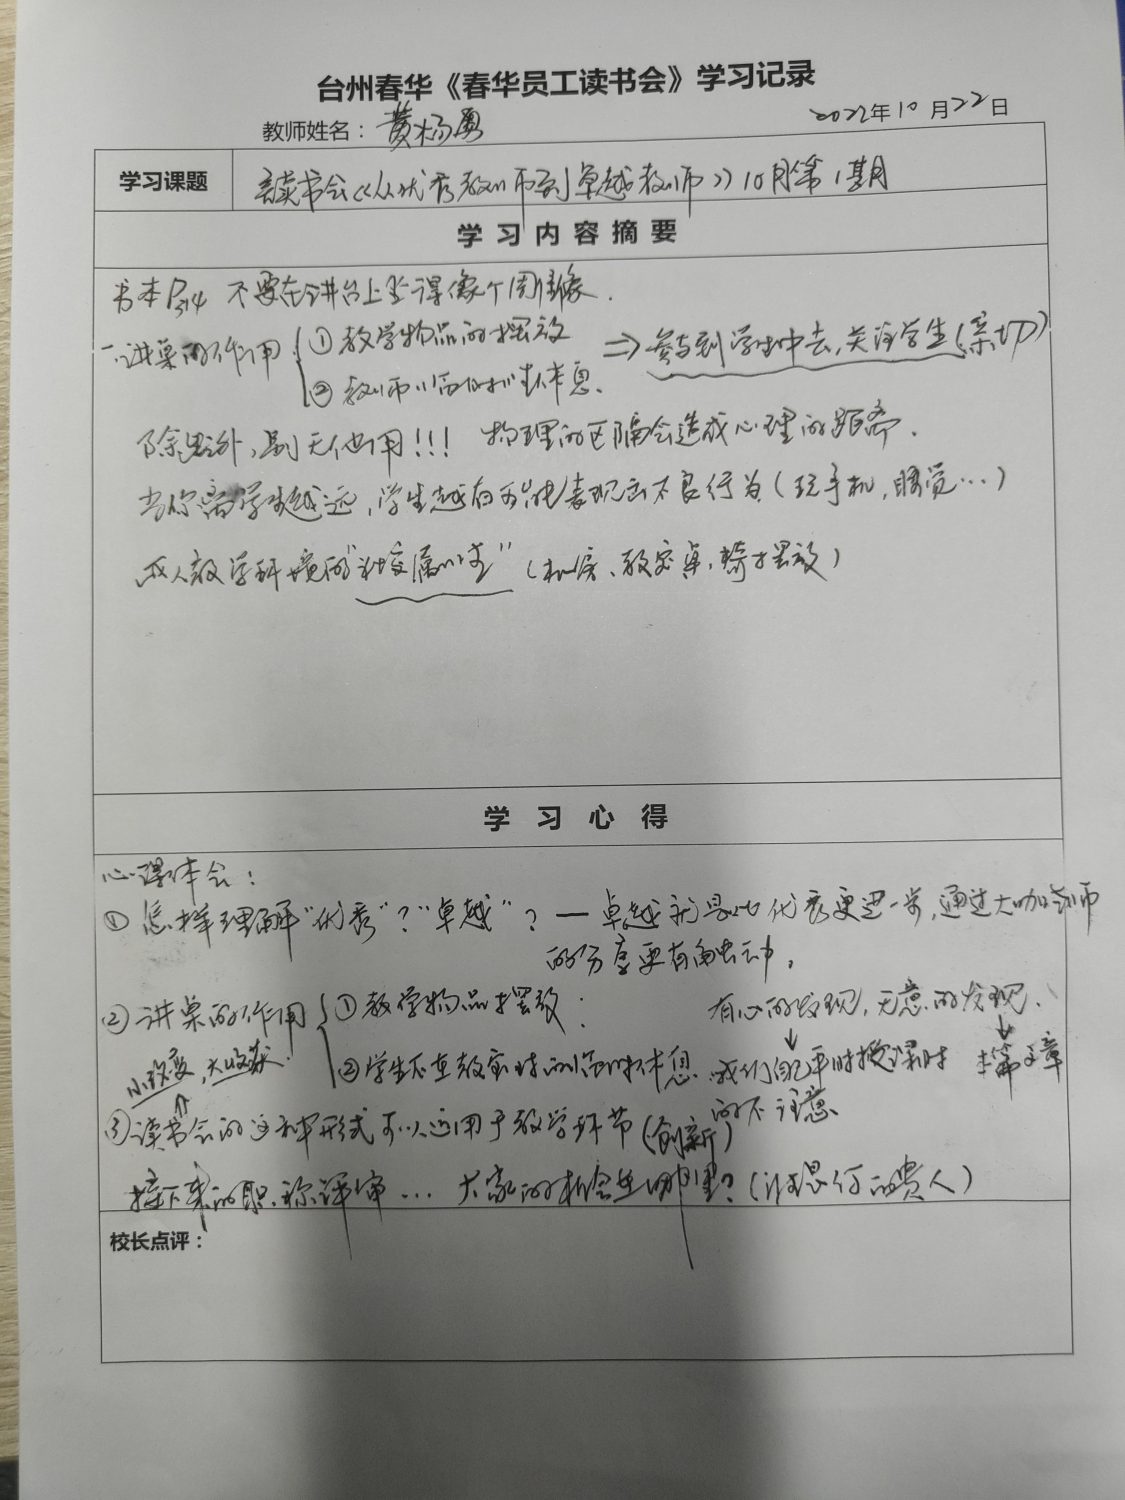 台州春华《春华员工读书会》学习记录
教师姓名：黄杨勇 2022年10月22日
学习课题 读书会《从优秀教师到卓越教师》10月第1期
学习内容摘要
书本P314 不要在讲台上坐得像个周倩像.
一.讲桌的作用 ①教学物品的摆放 ⇒ 参与到学生中去,关注学生(亲切)
②教师临时休息.
除此外,别无他用!!! 物理的区隔会造成心理的距离.
当你离学生越远,学生越有可能表现出不良行为(玩手机,睡觉…)
成人教学环境的"社交属性"(机房、教室桌,椅摆放)
学习心得
心得体会：
①怎样理解"优秀"?"卓越"? — 卓越就是比优秀更进一步,通过大咖老师
的分享更有触动,
②讲桌的作用 ①教学物品摆放: 有心的发现,无意的发现.
小改变,大收获. ②学生不在教室时的临时休息. 我们自己平时授课时 本篇文章
的不注意
③读书会的这种形式可以运用于教学环节(创新)
接下来的职称评审… 大家的机会在哪里?(谁是你的贵人)
校长点评：